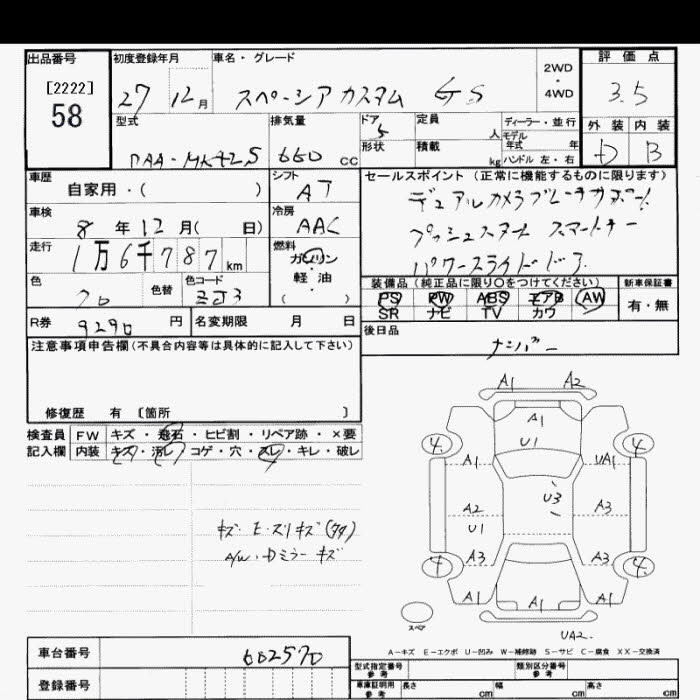 出品番号
[2222]
58
初度登録年月
27 12月
車名・グレード
スペーシアカスタム GS
2WD
・
4WD
評価点
3.5
外装 内装
D B
型式
DAA-MK42S
排気量
660 cc
ドア
5
形状
定員
人
積載
kg
ディーラー・並行
モデル年式 年
ハンドル 左・右
車歴
自家用・( )
シフト
AT
車検
8 年 12 月( 日)
冷房
AAC
走行
1万6千787km
燃料
ガソリン
・
軽・油
( )
色
クロ
色替
色コード
ZJ3
R券
9290 円
名変期限 月 日
セールスポイント(正常に機能するものに限ります)
デュアルカメラブレーキサポート
プッシュスタート スマートキー
パワースライドドア
装備品(純正品に限り○をつけてください)
PS PW ABS エアB AW
SR ナビ TV カワ
新車保証書
有・無
後日品
ナンバー
注意事項申告欄(不具合内容等は具体的に記入して下さい)
修復歴 有 〔箇所 〕
検査員
記入欄
FW キズ・飛石・ヒビ割・リペア跡・×要
内装 キズ・汚レ・コゲ・穴・スレ・キレ・破レ
キズ・E・スリキズ(タタ)
A/W・Dミラーキズ
A1 A2
A1
U1
4. 4.
A1 UA1
U3
A2 A3
U1
A3 A3
4. 4.
A1 A1 A1
スペア
UA2.
A-キズ E-エクボ U-凹み W-補修跡 S-サビ C-腐食 XX-交換済
車台番号
602570
登録番号
型式指定番号
参考
類別区分番号
参考
車庫証明用
参考
長さ cm
幅 cm
高さ cm